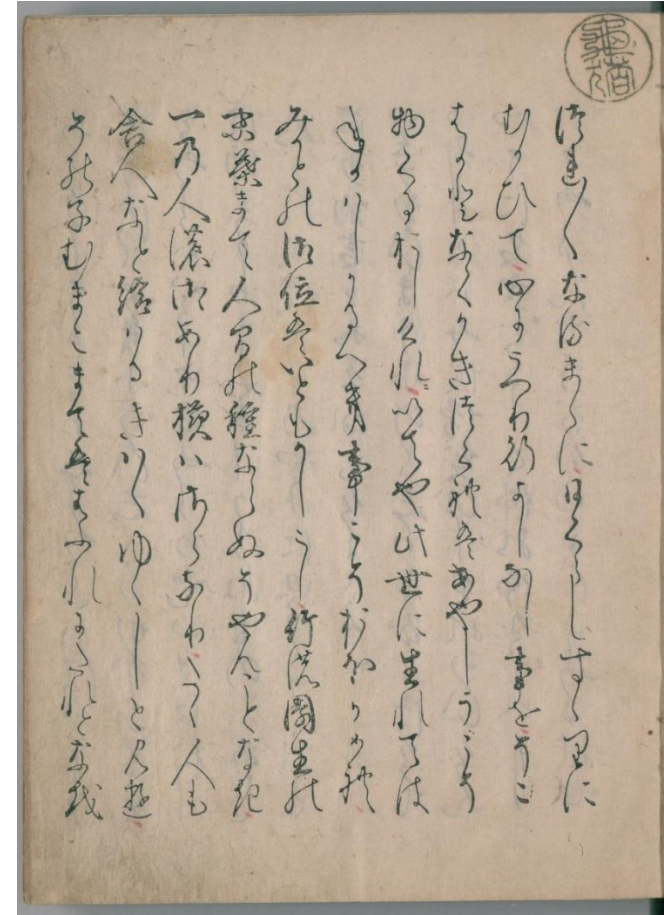 つれ〱なるまゝに日くらしすゝりに
むかひて心にうつり行よしなし事をそこ
はかとなくかきつくれはあやしうこそ
物くるおしけれいてや此世に生れては
ねかはしかるへき事こそおほかめれ
みかとの御位はいともかしこし竹の園生の
末葉まて人間の種ならぬそやんことなき
一乃人の御あり様ハさらなりたゝ人も
舎人なと給はるきハゝゆゝしと見ゆ
その子むまこまてははふれにたれとなを